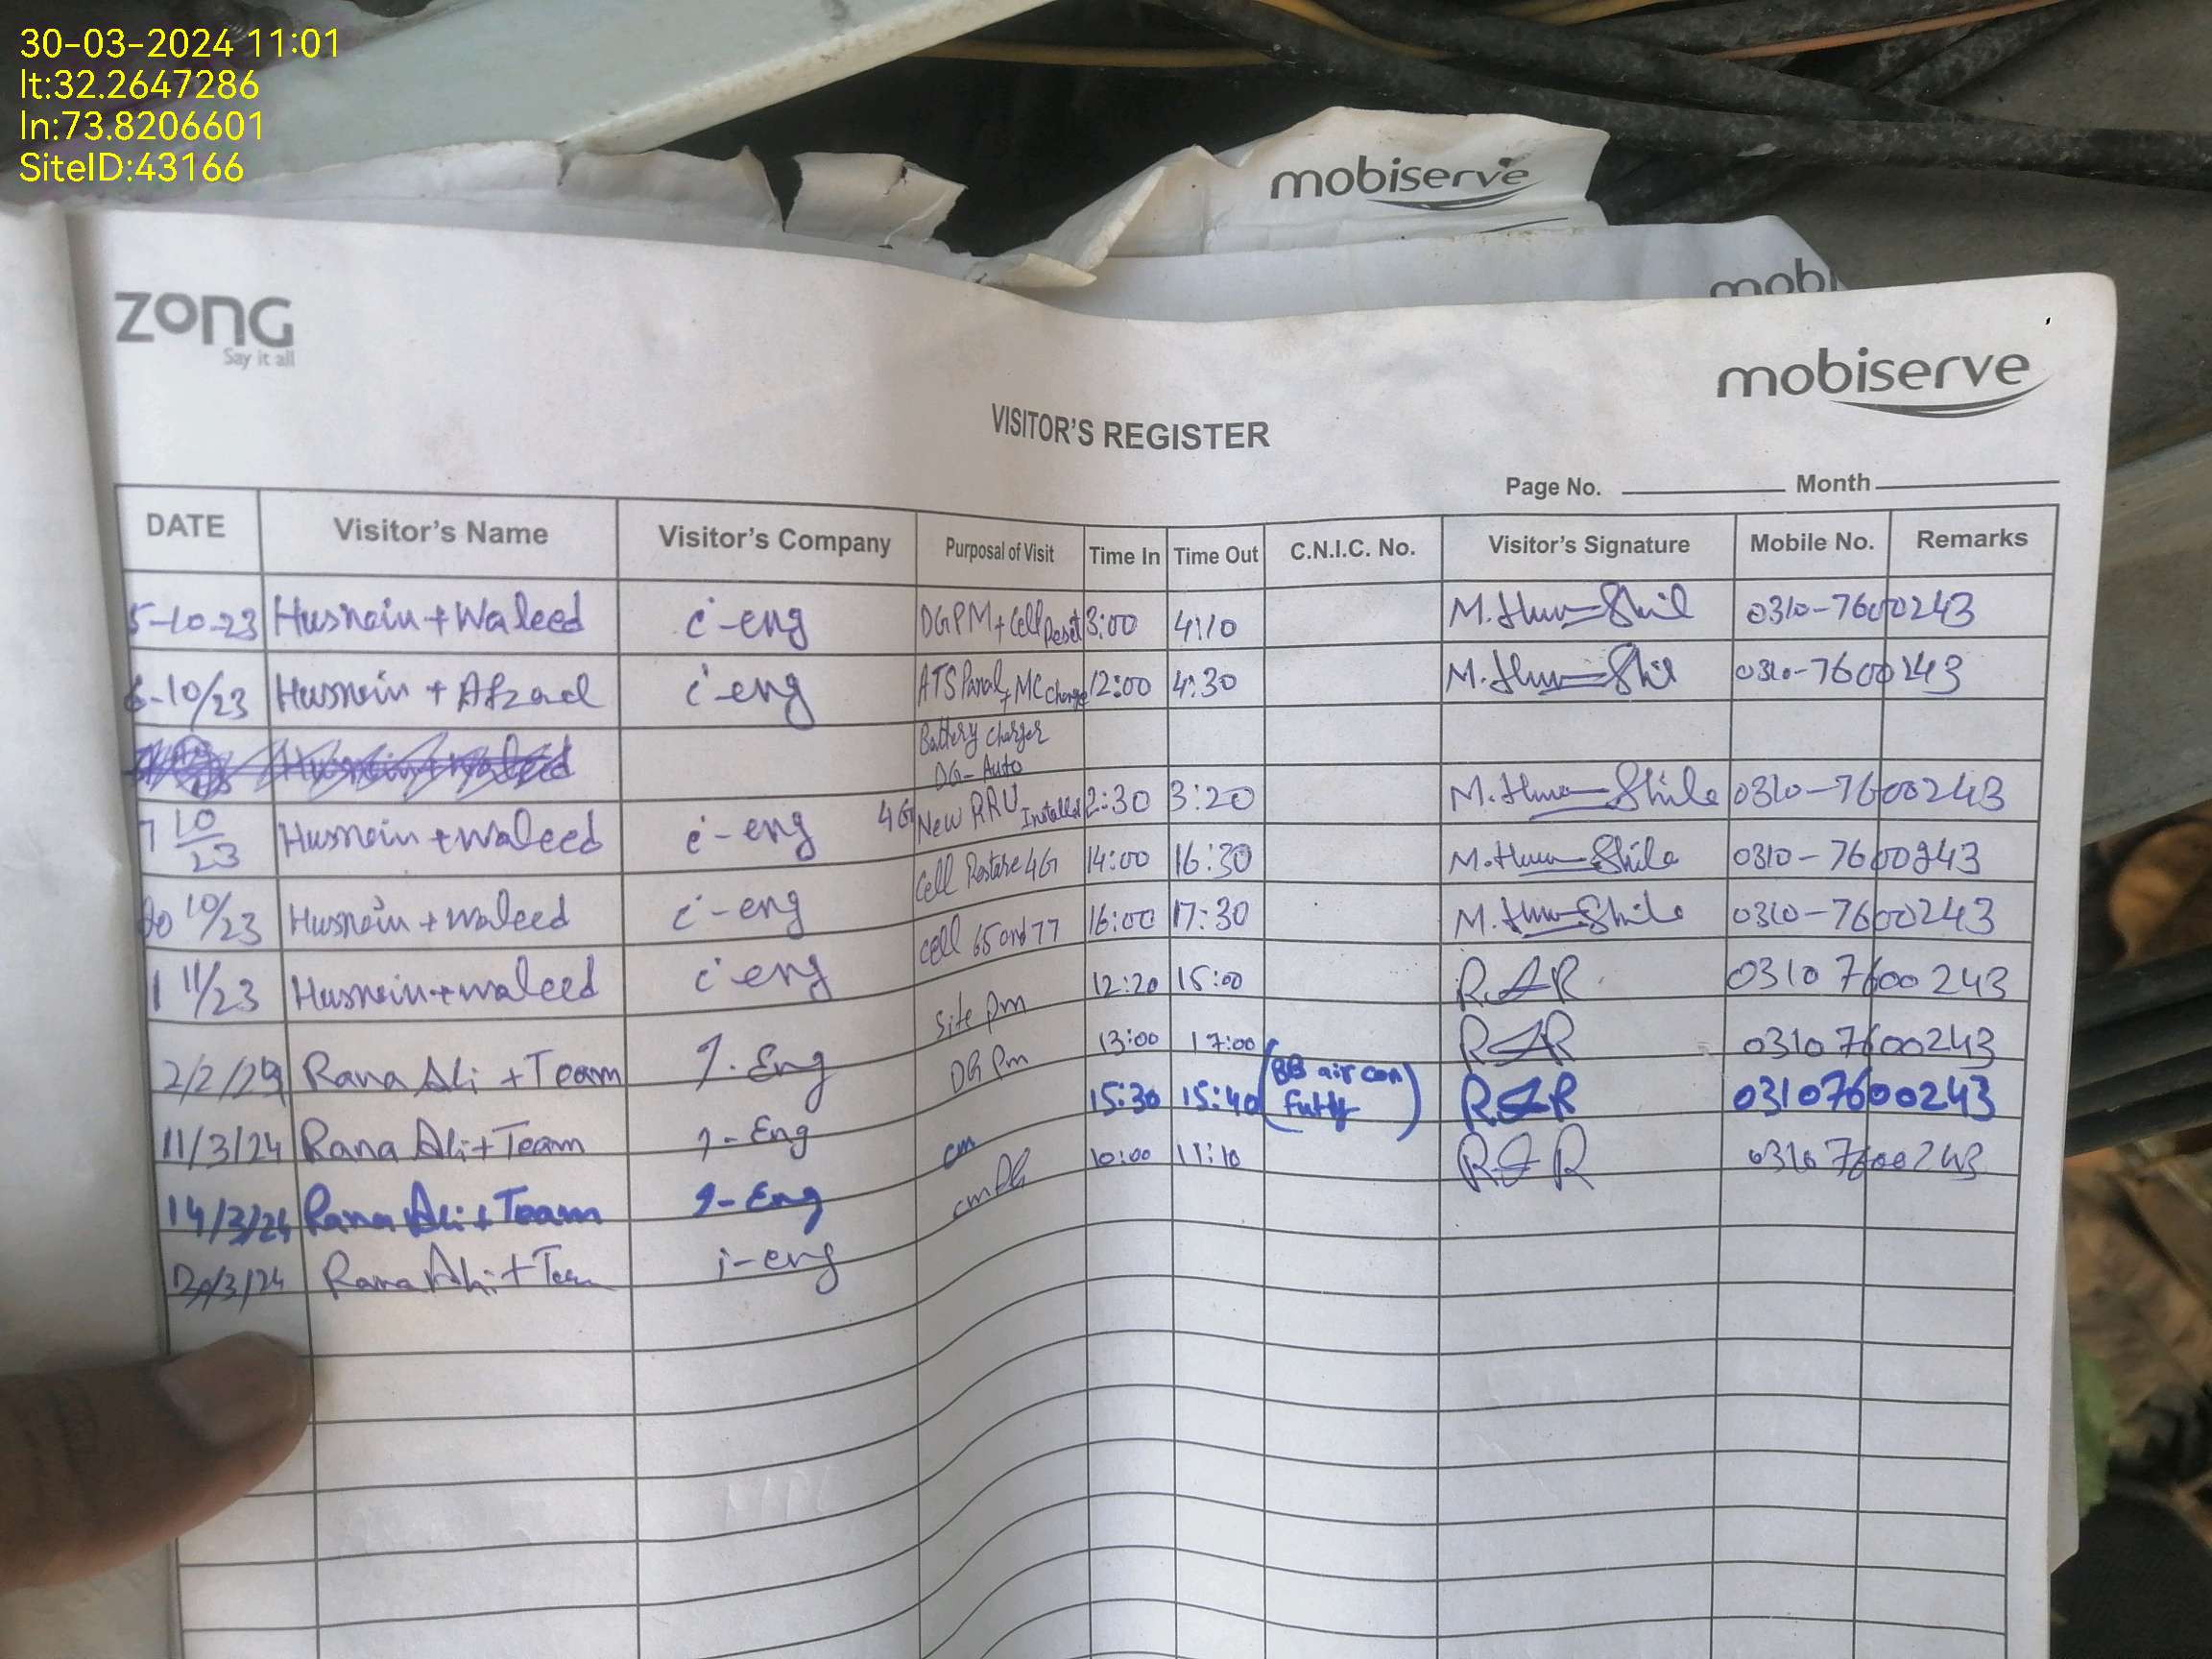 30-03-2024 11:01
lt:32.2647286
ln:73.8206601
SiteID:43166
mobiserve
mobi
ZONG
Say it all
mobiserve
VISITOR'S REGISTER
Page No. Month
DATE Visitor's Name Visitor's Company Purposal of Visit Time In Time Out C.N.I.C. No. Visitor's Signature Mobile No. Remarks
5-10-23 Husnain + Waleed i-eng DG PM + Cell Reset 3:00 4:10 0310-7600243
6-10/23 Husnain + Afzaal i-eng ATS Panal + MC Change 12:00 4:30 0310-7600243
Battery charger
DG-Auto
7 10/23 Husnain + Waleed i-eng 4G New RRU Installed 2:30 3:20 0310-7600243
10/23 Husnain + Waleed i-eng Cell Restore 4G 14:00 16:30 0310-7600243
1 11/23 Husnain + Waleed i-eng Cell 65 and 77 16:00 17:30 0310-7600243
2/2/24 Rana Ali + Team i-Eng Site pm 12:20 15:00 RAR 0310 7600 243
11/3/24 Rana Ali + Team i-Eng DG Pm 13:00 17:00 RAR 0310 7600243
14/3/24 Rana Ali + Team i-Eng cm 15:30 15:40 (BB air con) RAR 03107600243
/3/24 Rana Ali + Team i-eng 10:00 11:10 RAR 0310 7600243